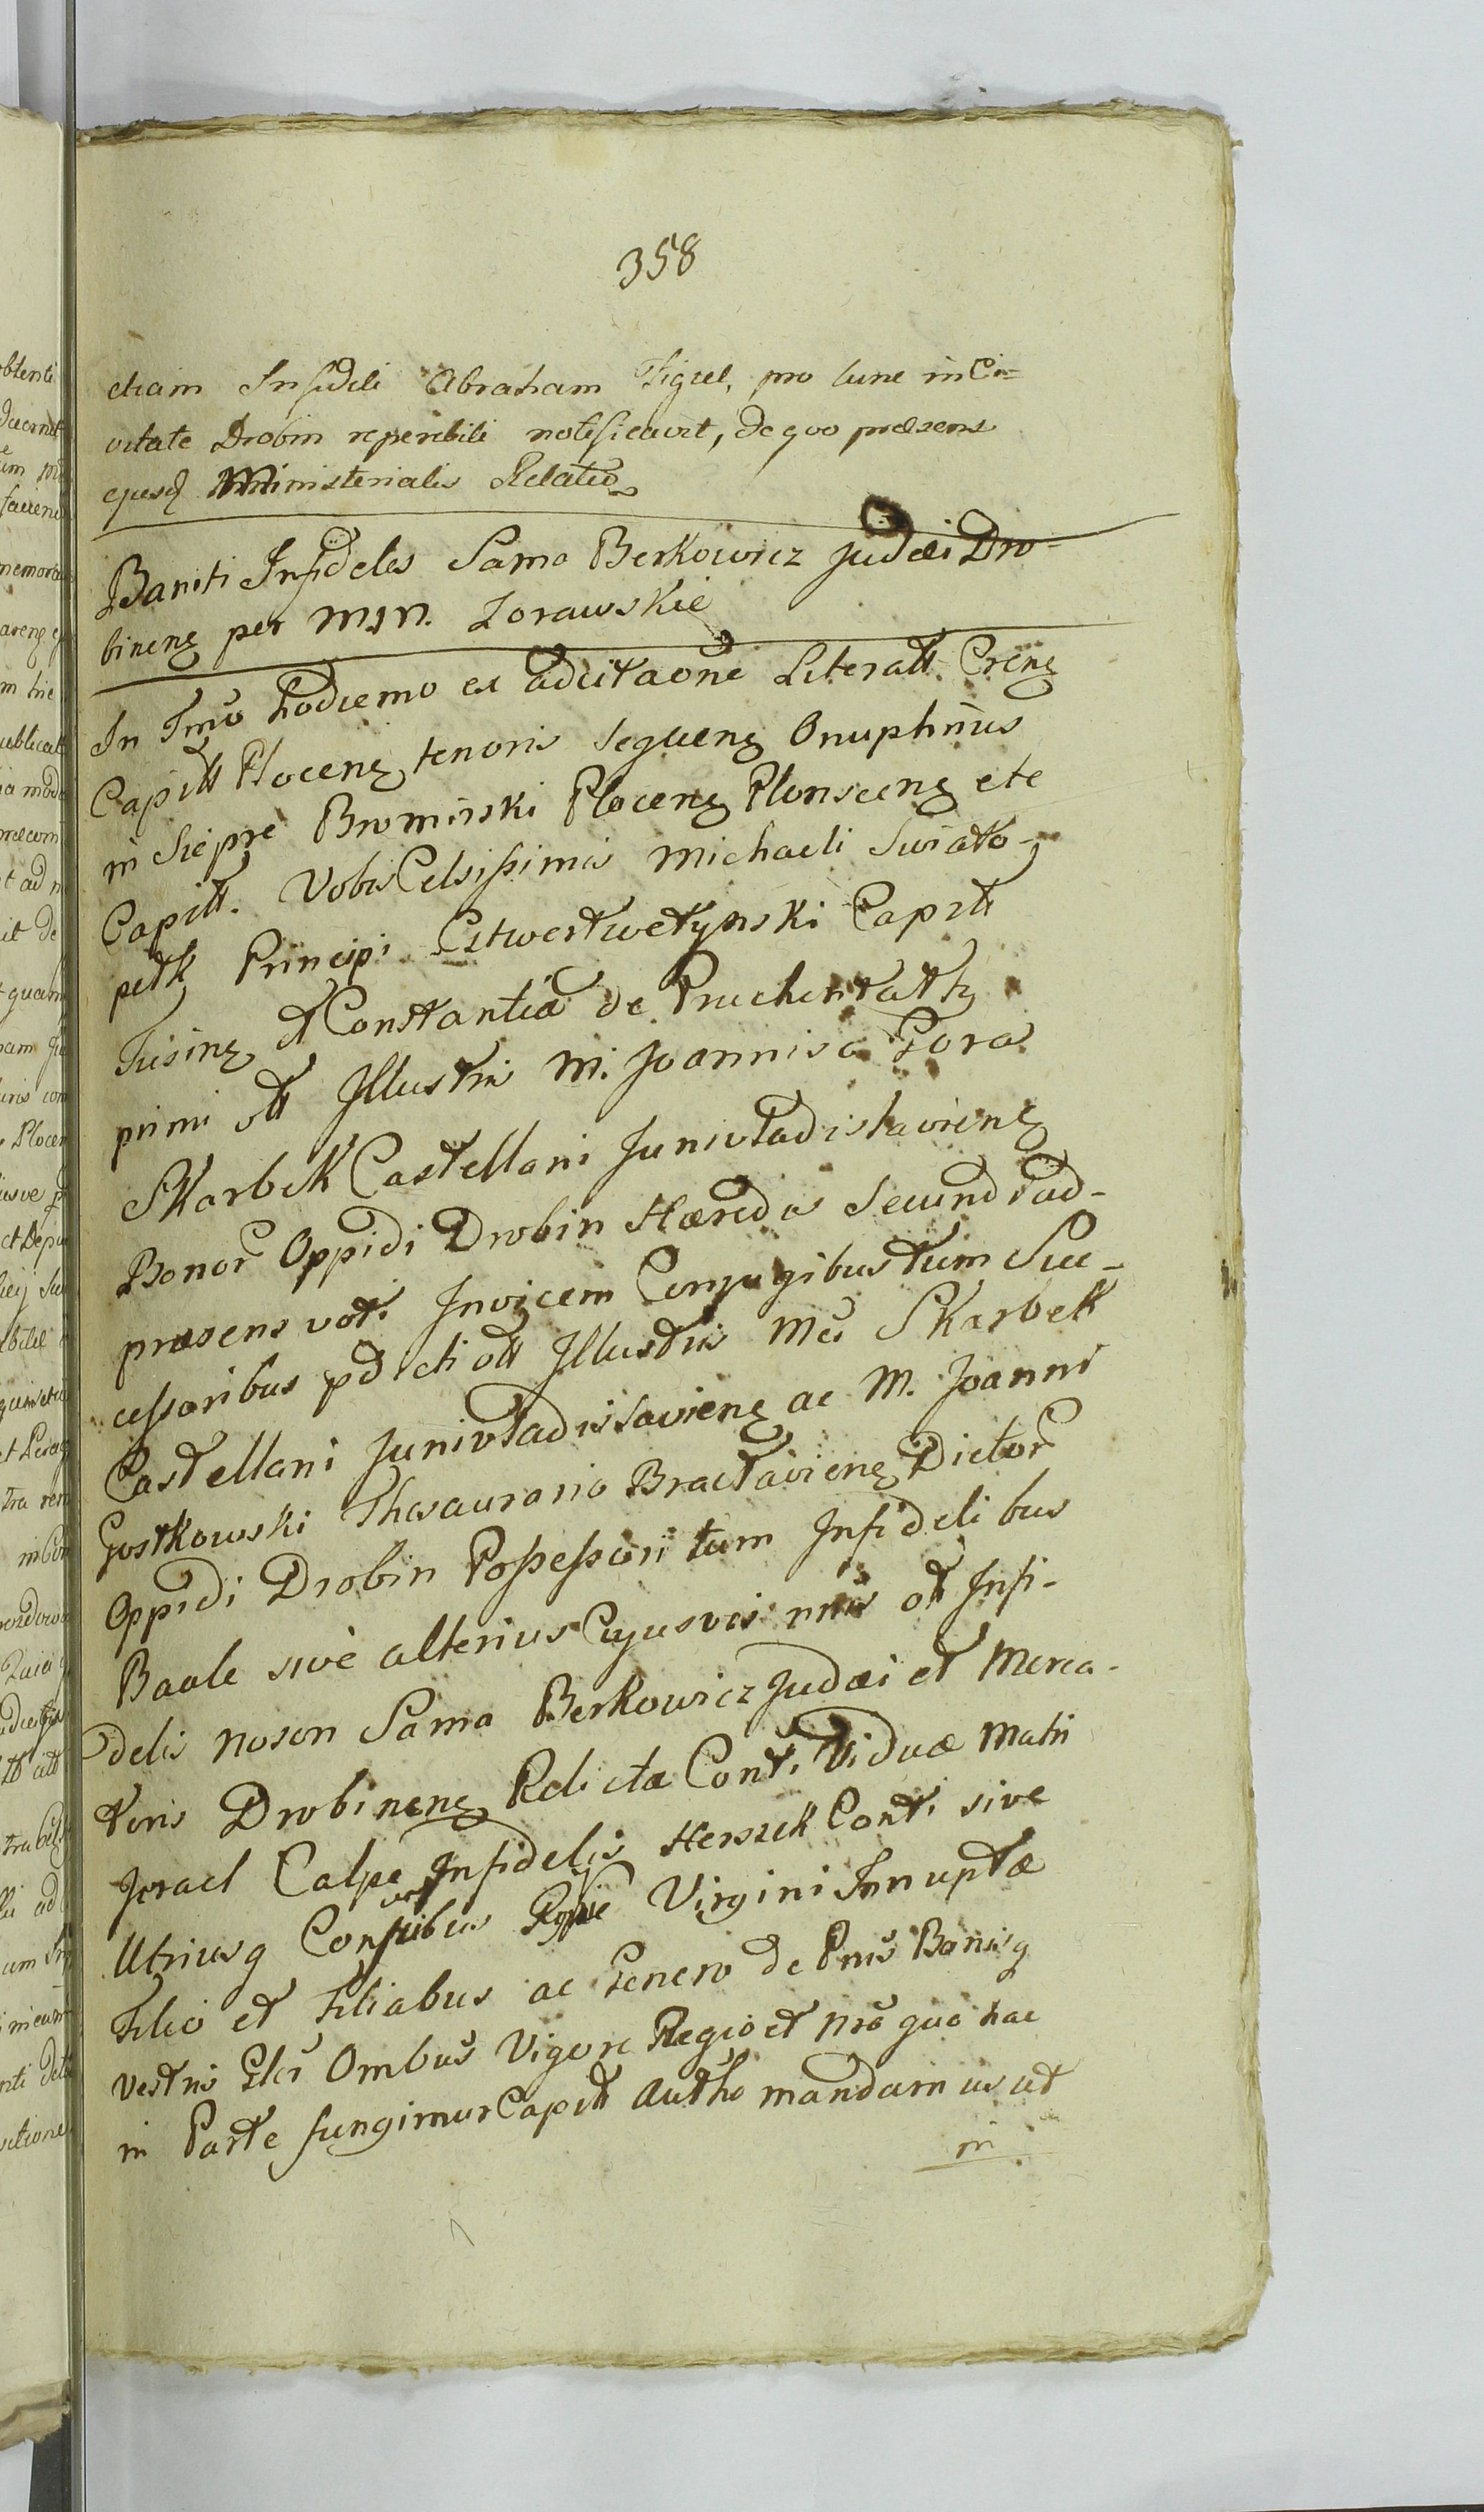 358
etiam Infideli Abraham Figiel, pro tunc in Ci=
vitate Drobin reperibili notificavit, de quo præsens
ejusd Ministerialis Relatio
Baniti Infideles Sama Berkowicz Judæi Dro-
binens per MM. Zorawskie
In Tmo hodierno ex adcitaone Literatt Crens
Capitt Plocens tenoris sequens Onuphrius
in Siepre Bromirski Plocens Plonscens etc
Capitt. Vobis Celsissimis Michaeli Swiato-
pełk Principi Cstwertwetynski Capitt
Tusins et Constantia de
primi ott Illustris M. Joannis a Gora
Skarbek Castellani Juniwladislaviens
Bonor Oppidi Drobin Hæredis secund vad-
præsens voti Invicem Conjugibus tum Suc-
cessoribus pdicti ott Illustris Mci Skarbek
Castellani Juniwladislaviens ac M. Joanni
Gostkowski Thesaurario Bractaviens Dictor
Oppidi Drobin Possessori tum Infidelibus
Baale sive alterius Cujusvis nnis ott Infi-
delis Noson Sama Berkowicz Judæi et Merca-
toris Drobinens Relictæ Cont. Viduæ Matri
Israel Calpe Infidelis Herszek Cont. sive
Utriusq Virgini Innuptæ
Filio et Filiabus ac Genero de Pnis Bonisq
vestris Glr Ombus Vigore Regio et nro quo hac
in Parte fungimur Capitt Autho mandamus ut
in